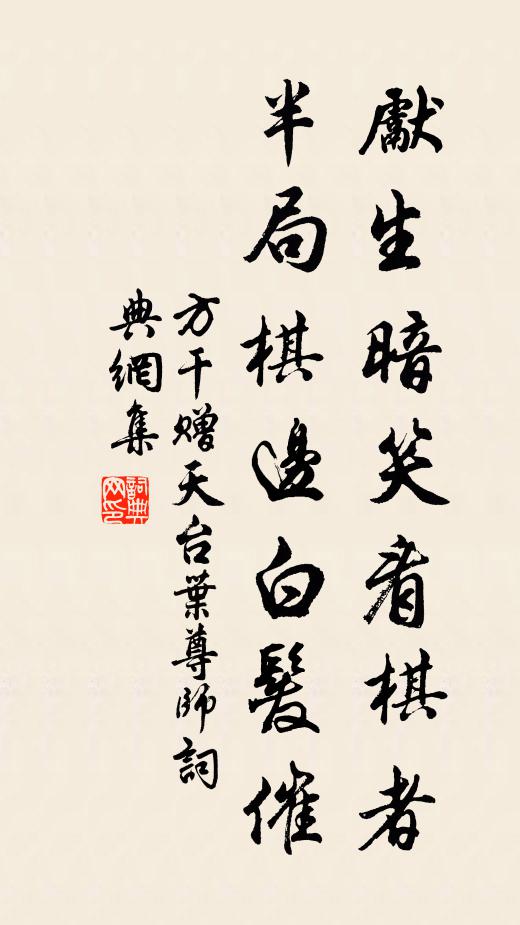 獻生暗笑看棋者
半局棋邊白髮催
方干贈天台葉尊師詞
典網集
詞典
网印